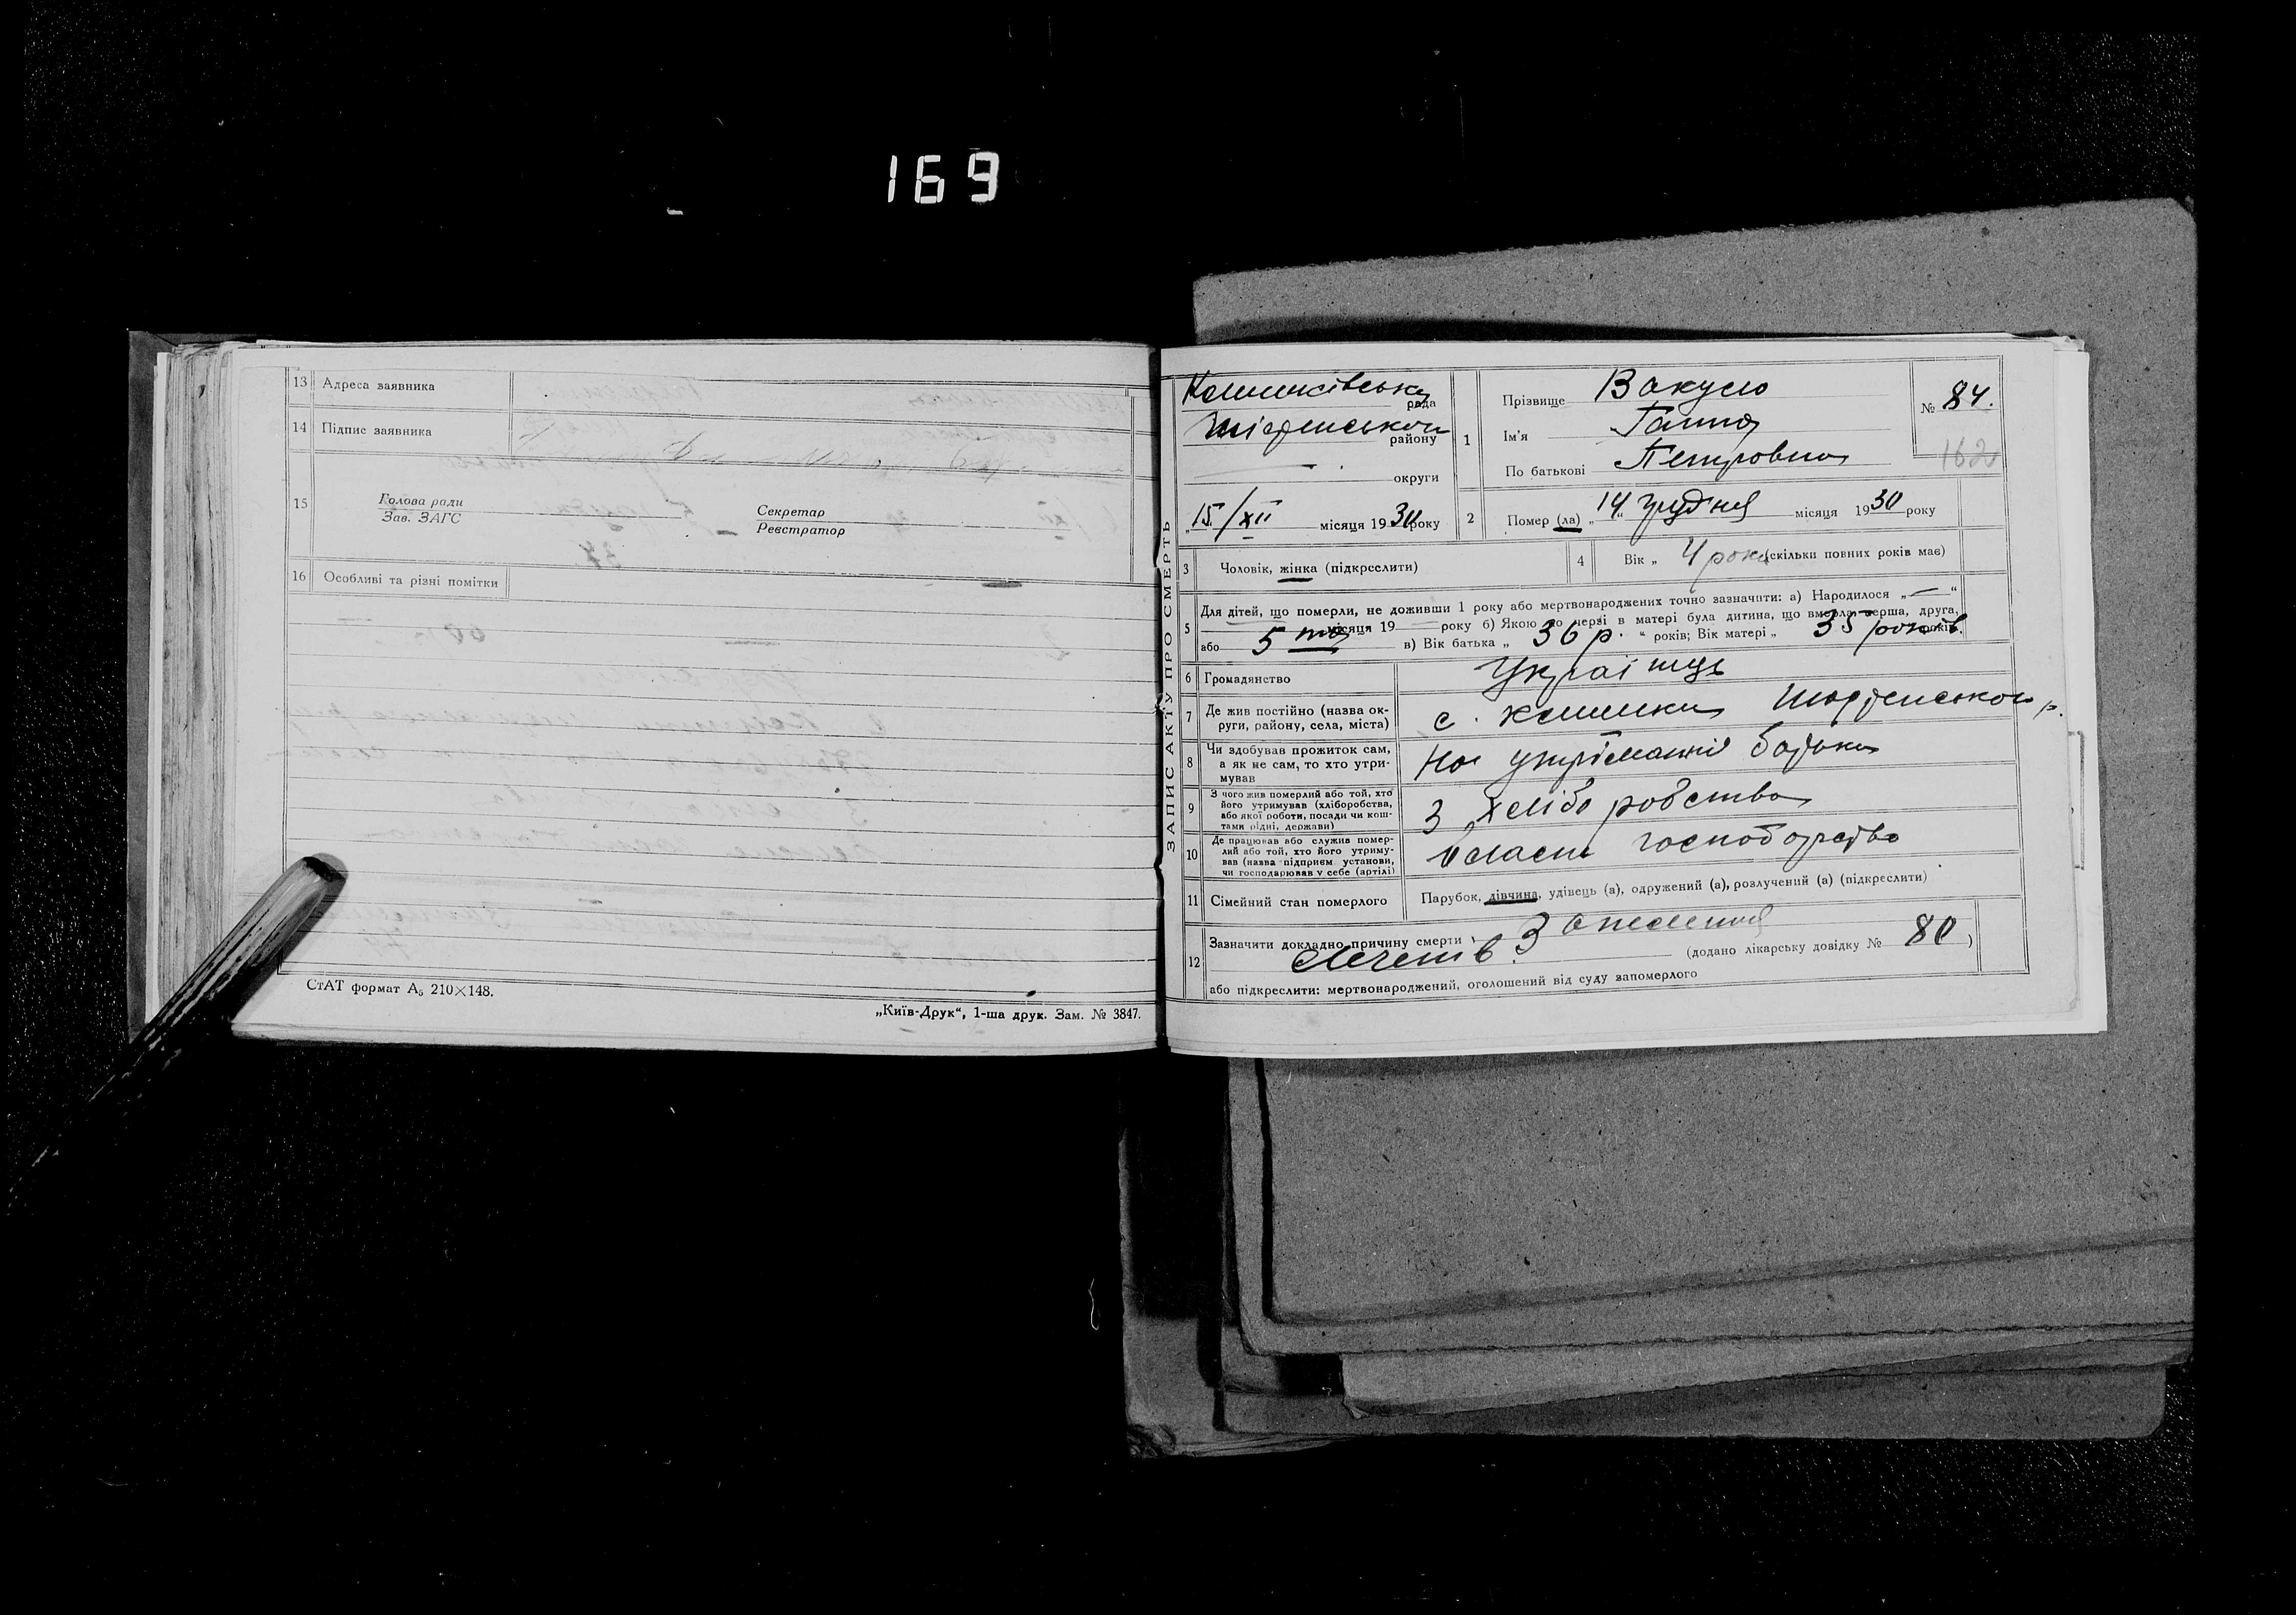 169
13 Адреса заявника
14 Підпис заявника
15 Голова ради
Зав. ЗАГС
Секретар
Реєстратор
16 Особливі та різні помітки
СтАТ формат А₅ 210×148.
„Київ-Друк“, 1-ша друк. Зам. № 3847.
ЗАПИС АКТУ ПРО СМЕРТЬ
рада
району
округи
„15/XII місяця 1930 року
1 Прізвище Вакуло
Ім'я Ганна
По батькові Петровна
№ 84.
162
2 Помер (ла) „14“ грудня місяця 1930 року
3 Чоловік, жінка (підкреслити)
4 Вік „ 4 роки (скільки повних років має)
5 Для дітей, що померли, не доживши 1 року або мертвонароджених точно зазначити: а) Народилося „—“
— місяця 19— року б) Якою по черзі в матері була дитина, що вмерла: перша, друга,
або 5 та в) Вік батька „ 36 р. “ років; Вік матері „ 35 років.
6 Громадянство Украінць
7 Де жив постійно (назва округи, району, села, міста) с.
8 Чи здобував прожиток сам, а як не сам, то хто утримував На утріманні батька
9 З чого жив померлий або той, хто його утримував (хліборобства, або якої роботи, посади чи коштами рідні, держави) З хліборобства
10 Де працював або служив померлий або той, хто його утримував (назва підприєм. установи, чи господарював у себе (артілі) Власн господарство
11 Сімейний стан померлого Парубок, дівчина, удівець (а), одружений (а), розлучений (а) (підкреслити)
12 Зазначити докладно причину смерти Запалення
легенів. (додано лікарську довідку № 80 )
або підкреслити: мертвонароджений, оголошений від суду запомерлого